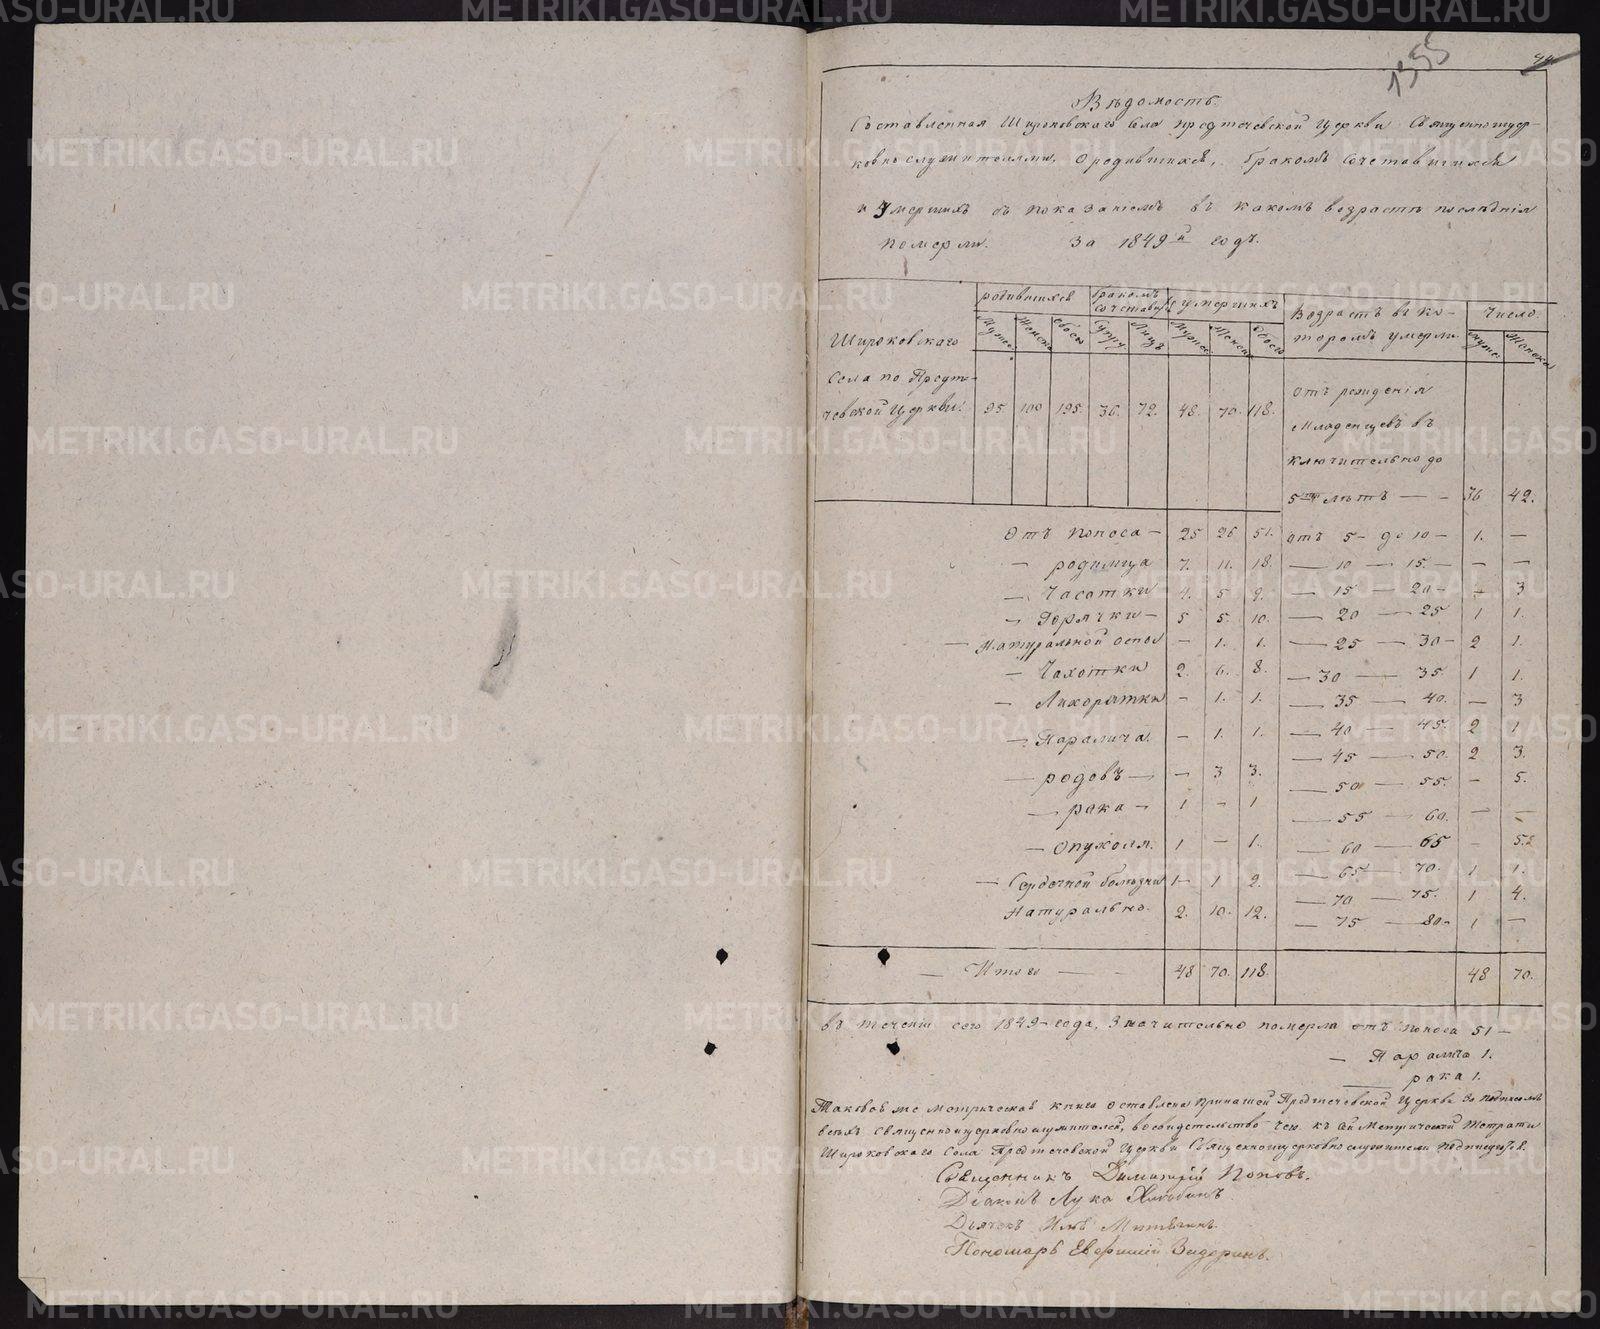 1355
Вѣдомость.
Составленная Широковскаго Села Предтечевской Церкви Священноцер-
ковнослужителями, о родившихся, бракомъ сочетавшихся
и умершихъ съ показаніемъ въ какомъ возрастѣ послѣднія
померли. За 1849й годъ.
родившихся | бракомъ сочетав. | умершихъ | Возрастъ въ ко-тором умерли | Число.
Мужес. | Женска | Обоего | Супру | Лицъ | Мужес. | Женска | Обоего | мужес. | Женска
Широковскаго
Села по Предте-
чевской Церкви. 95. 100 195. 36. 72. 48. 70. 118.
отъ рожденія
Младенцевъ въ
ключительно до
5ти лѣтъ — — 36 42.
Отъ Поноса — 25 26 51. отъ 5 — до 10 — 1. —
— родимца 7. 11. 18. — 10 — 15. — — —
— Чахотки 4. 5 9. — 15 — 20 — — 3
— Горячки — 5 5. 10. — 20 — 25 1 1.
— Натуральной оспы — 1. 1. — 25 — 30 — 2 1.
— Чахотки 2. 6. 8. — 30 — 35. 1 1.
— Лихоратки — 1. 1. — 35 — 40. — 3
— Паралича. — 1. 1. — 40 — 45. 2 1
— родовъ — — 3 3. — 45 — 50. 2 3.
— 50 — 55. — 5.
— рака — 1 — 1 — 55 — 60. — —
— Опухоли. 1 — 1. — 60 — 65 — 5.
— Сердечной болѣзни 1 — 1 2. — 65 — 70. 1 1.
Натурально. 2. 10. 12. — 70 — 75. 1 4.
— 75 — 80 — 1 —
— Итого — — 48 70. 118. 48 70.
въ теченіи сего 1849 — года, Значительно померло отъ поноса 51 —
— Паралича 1.
— рака 1.
Таковая же Метрическая книга оставлена при нашей Предтечевской Церкви за подписомъ
всѣхъ священноцерковнослужителей, во свидетельство чего къ сей Метрической Тетрати
Широковскаго Села Предтечевской Церкви Священноцерковнослужители Подписуемся.
Священникъ Димитрій Поповъ.
Діаконъ Лука
Дьячекъ Илья
Пономарь Евфимій
METRIKI.GASO-URAL.RU